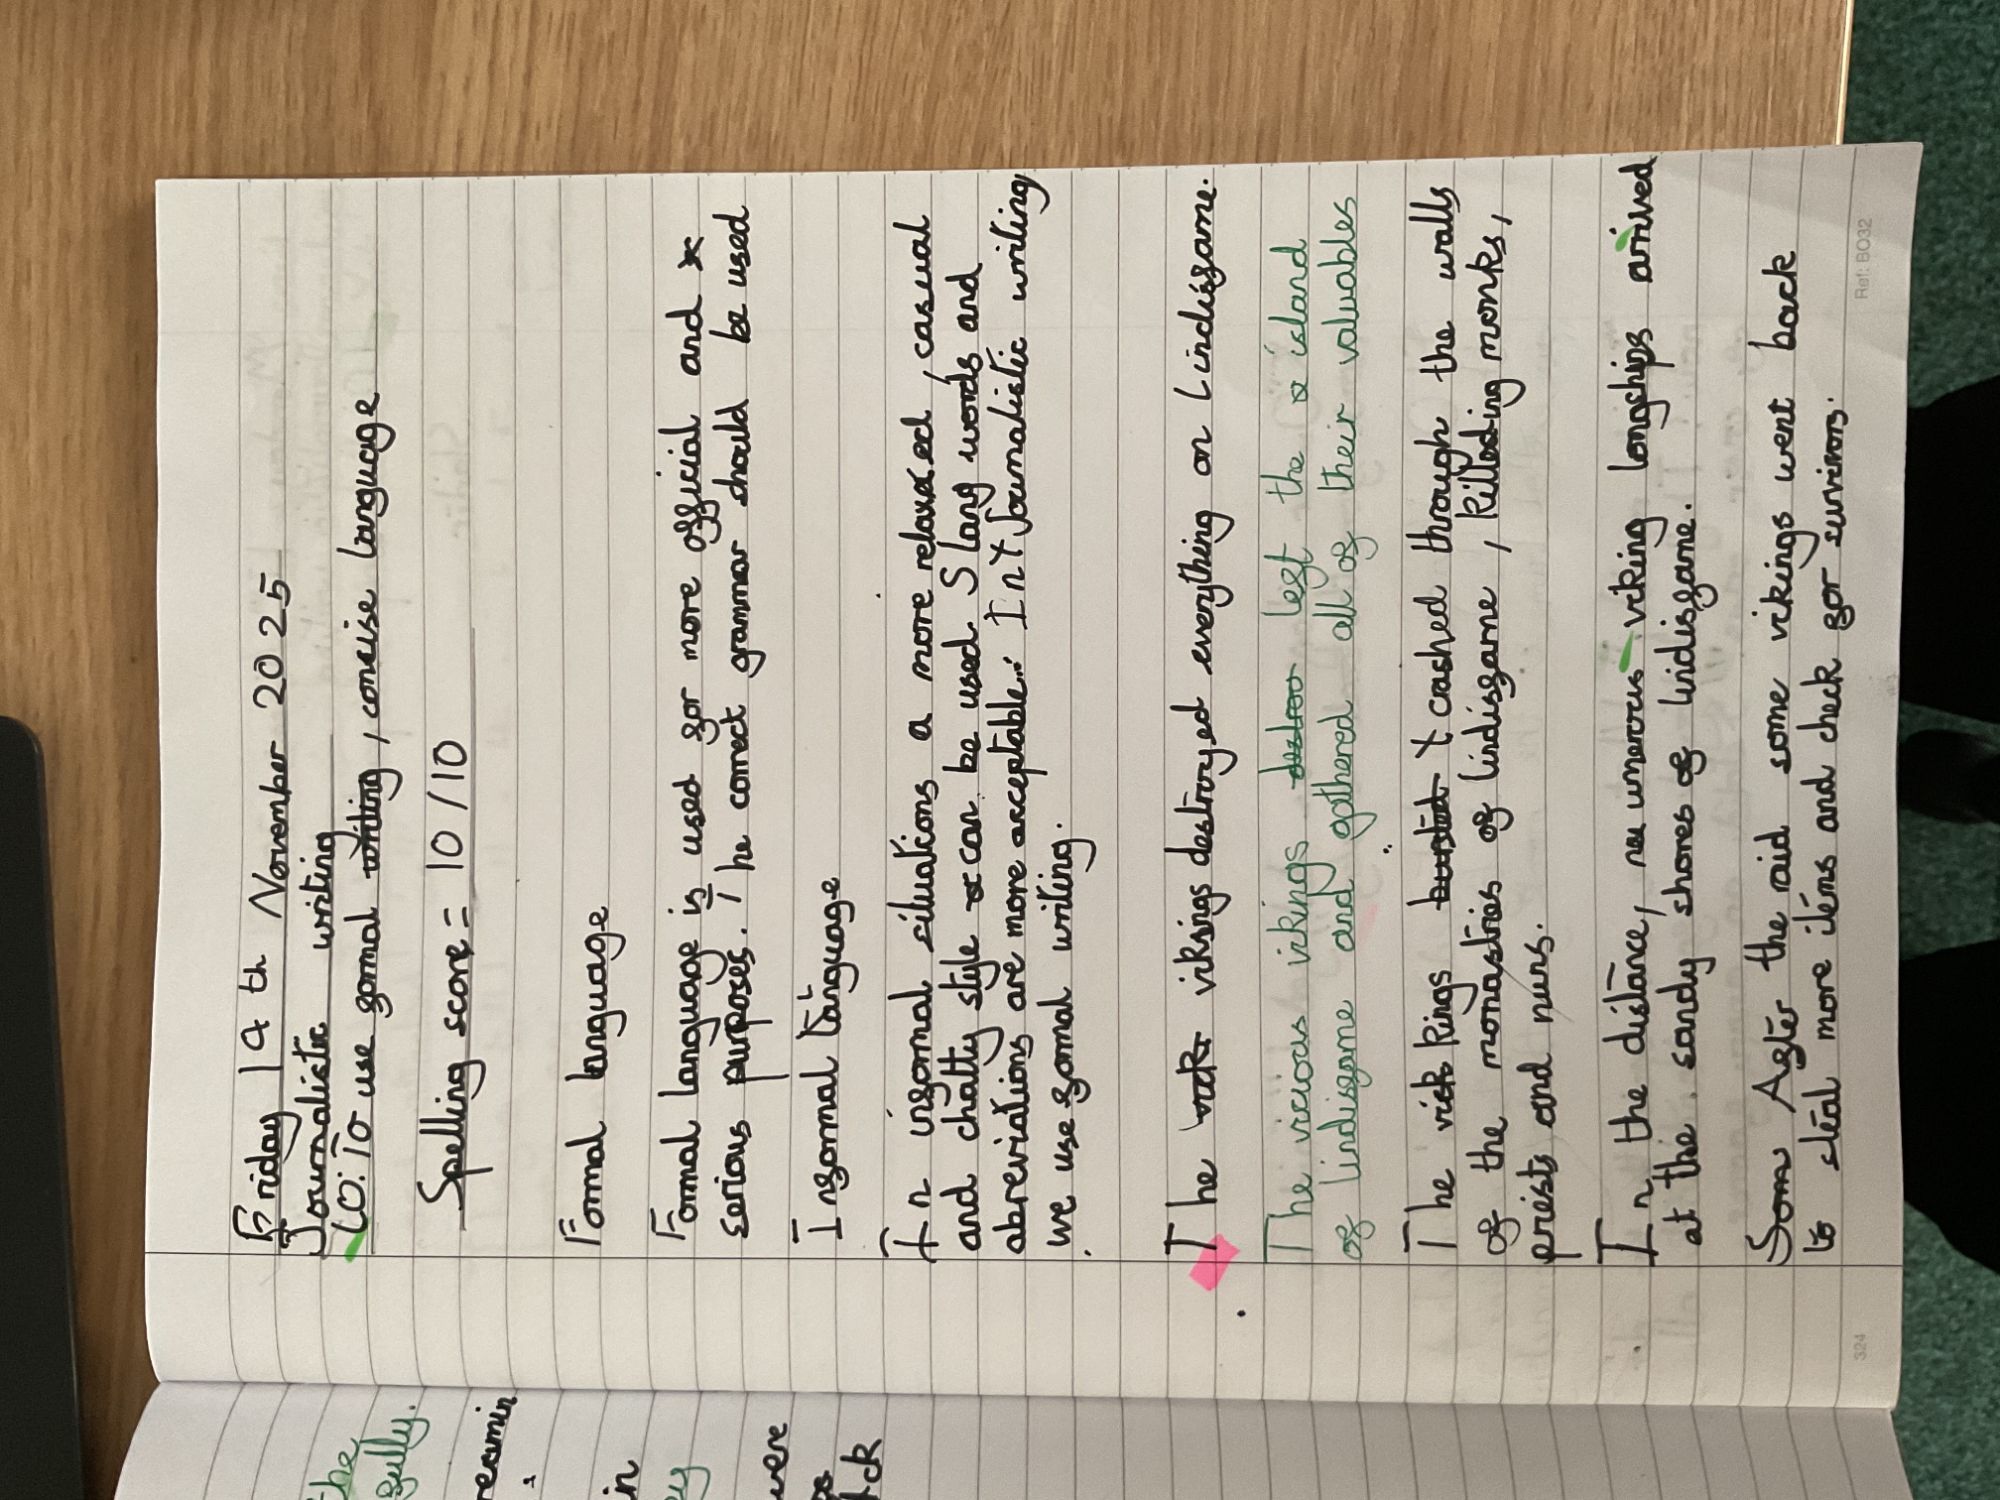 Friday 14th November 2025
Journalistic writing
LO: To use formal writing, concise language
Spelling score = 10/10
Formal language
Formal language is used for more official and
serious purposes. The correct grammar should be used
Informal language
In informal situations a more relaxed, casual
and chatty style can be used. Slang words and
abreviations are more acceptable. In Journalistic writing
we use formal writing.
The vikings destroyed everything on Lindisfame.
The vicious vikings destroo left the island
of lindisfame and gathered all of their valuables
The vikings bursted crashed through the walls
of the monastries of lindisfame, killeding monks,
priests and nuns.
In the distance, numerous viking longships arrived
at the sandy shores of lindisfame.
Some After the raid some vikings went back
to steal more items and check for survivors.
324
Ref: BO32
the
gully.
in
were